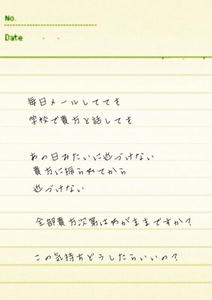 No.
Date . .
毎日メールしてても
学校で貴方と話してても
あの日みたいに近づけない
貴方に振られてから
近づけない
全部貴方次第はわがままですか?
この気持ちどうしたらいいの?